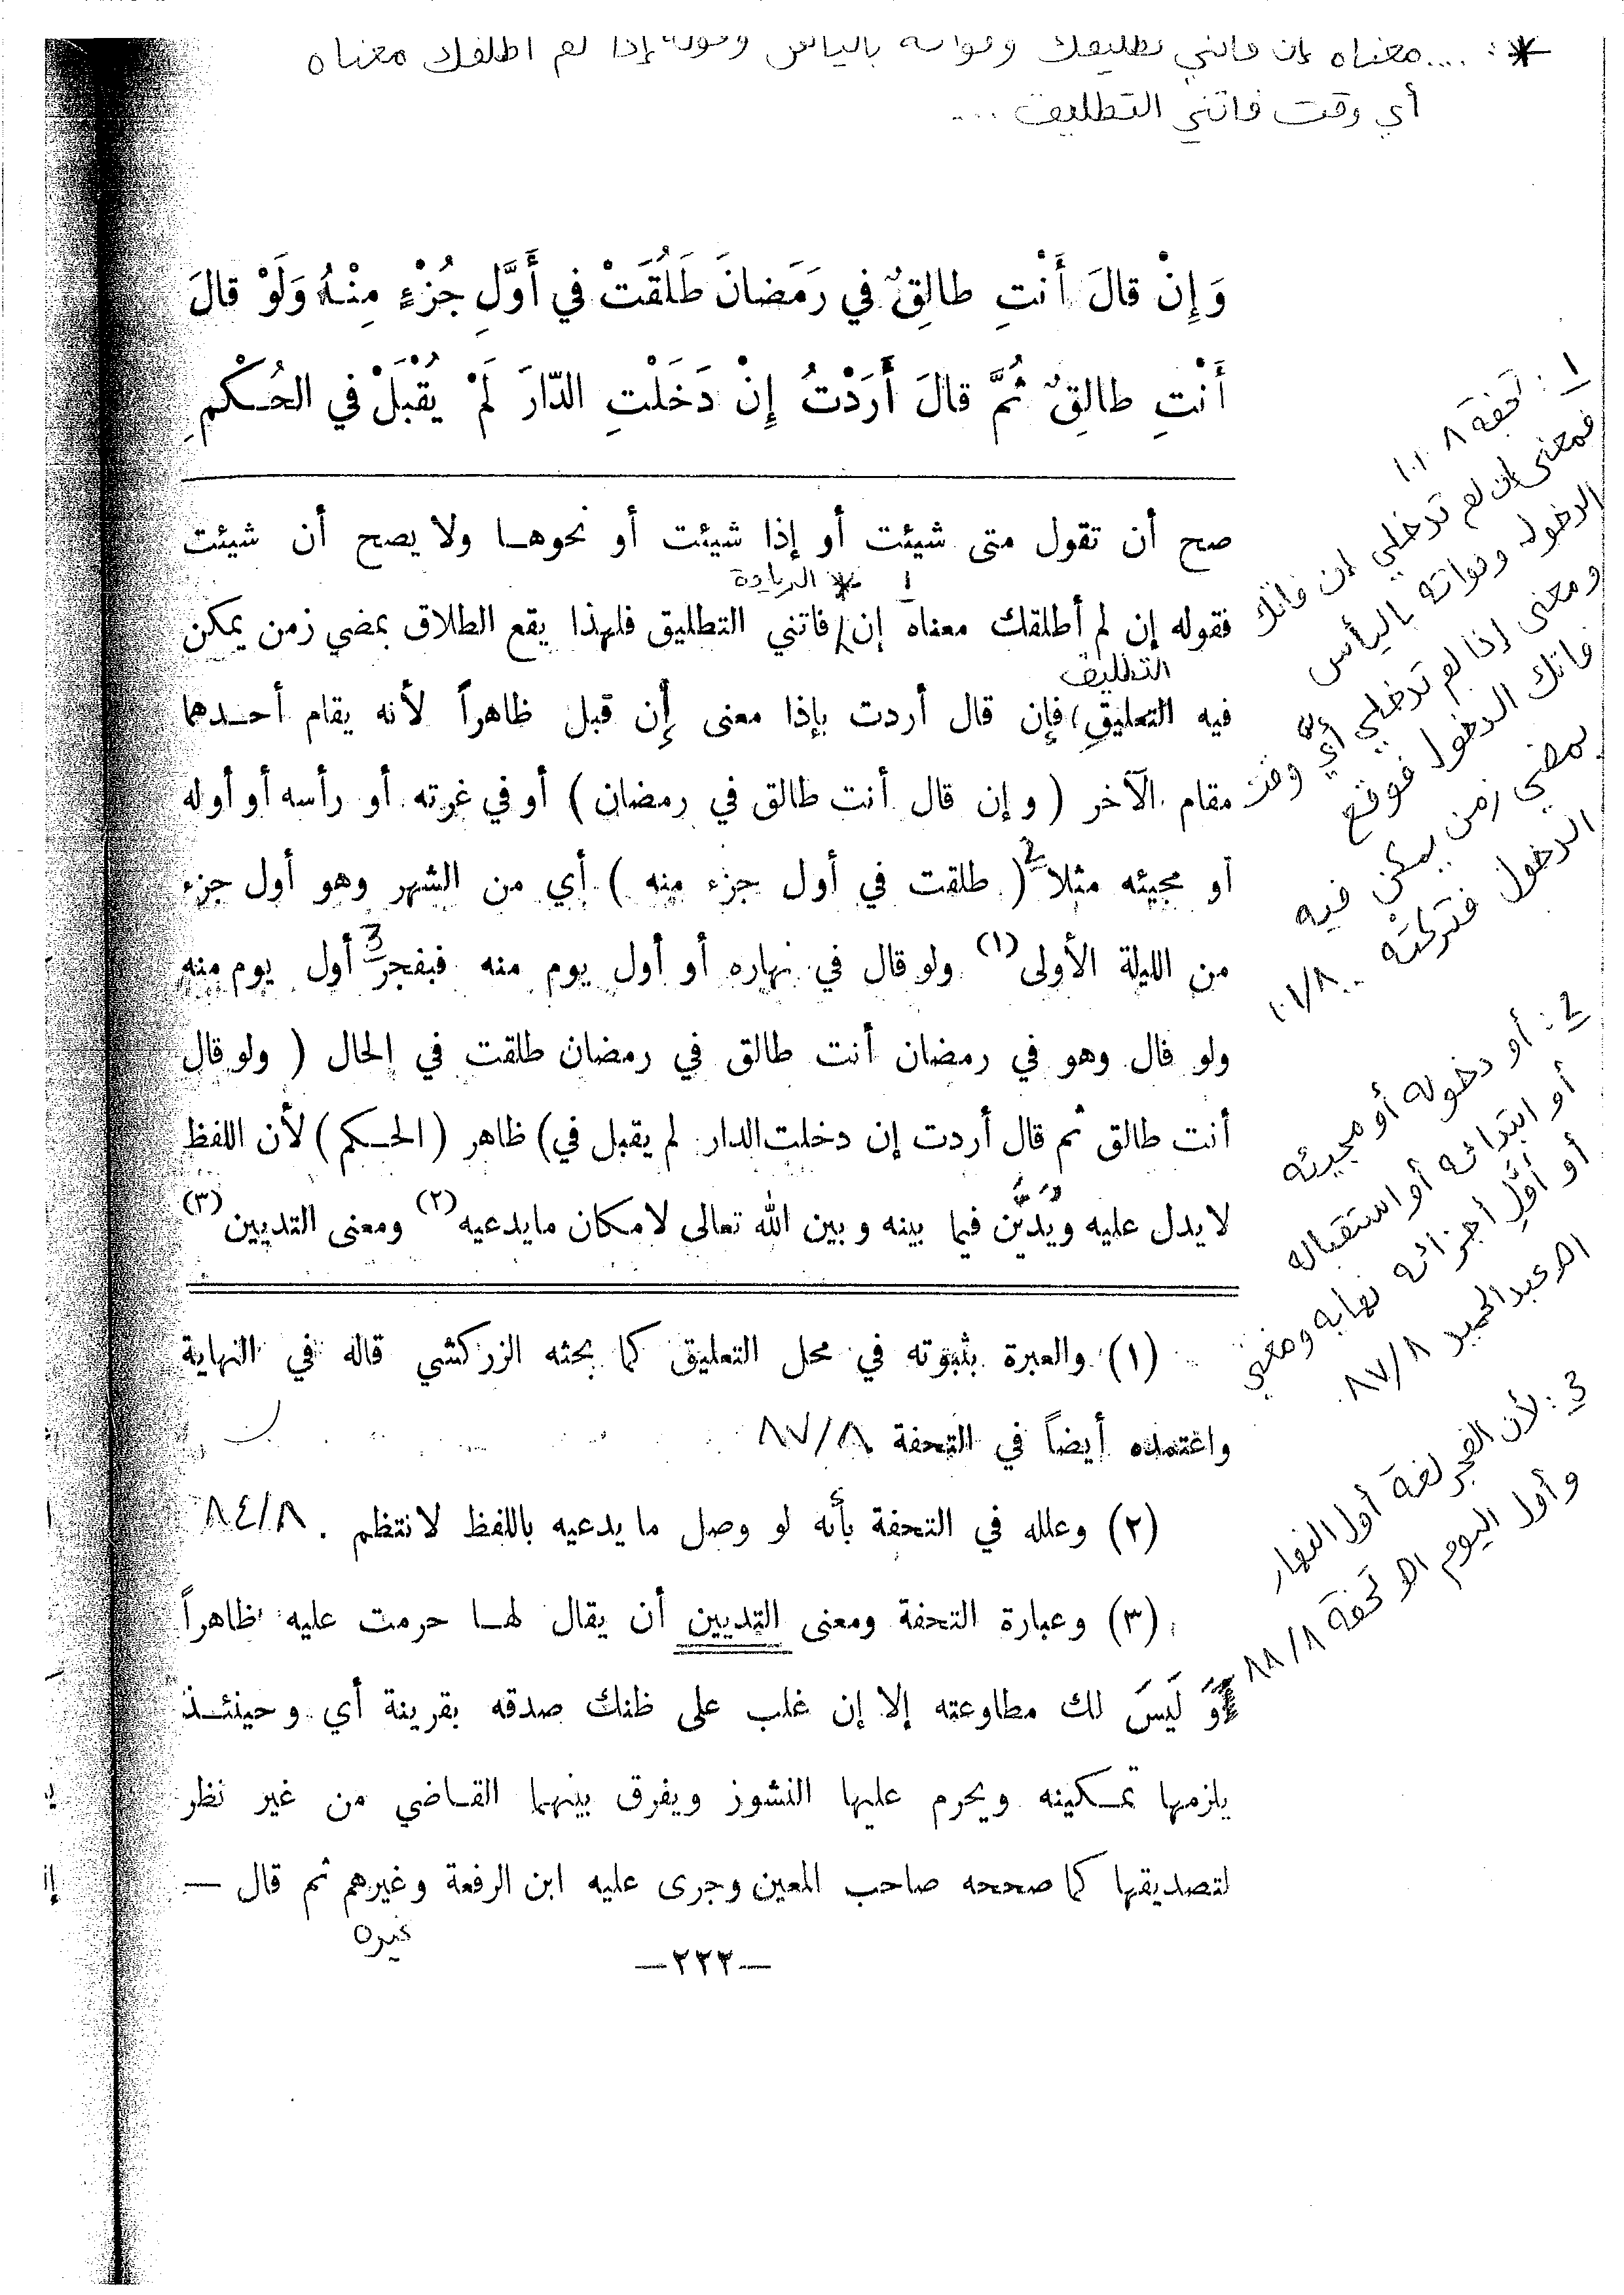 *: ... معناه إن فاتني تطليقك وفواته باليأس وقوله إذا لم أطلقك معناه
أي وقت فاتني التطليق ...
وَإِنْ قالَ أَنْتِ طالِقٌ في رَمَضانَ طَلُقَتْ في أَوَّلِ جُزْءٍ مِنْهُ وَلَوْ قالَ
أَنْتِ طالِقٌ ثُمَّ قالَ أَرَدْتُ إِنْ دَخَلْتِ الدّارَ لَمْ يُقْبَلْ في الحُكْمِ
صح أن تقول متى شيئت أو إذا شيئت أو نحوها ولا يصح أن شيئت
1 * الزيادة
فقوله إن لم أطلقك معناه إن / فاتني التطليق فلهذا يقع الطلاق بمضي زمن يمكن
التطليق
فيه التعليق، فإن قال أردت بإذا معنى إن قبل ظاهراً لأنه يقام أحدهما
مقام الآخر ( وإن قال أنت طالق في رمضان ) أو في غرته أو رأسه أو أوله
أو مجيئه مثلا 2 ( طلقت في أول جزء منه ) أي من الشهر وهو أول جزء
من الليلة الأولى (١) ولو قال في نهاره أو أول يوم منه فبفجر 3 أول يوم منه
ولو قال وهو في رمضان أنت طالق في رمضان طلقت في الحال ( ولو قال
أنت طالق ثم قال أردت إن دخلت الدار لم يقبل في) ظاهر ( الحكم ) لأن اللفظ
لا يدل عليه ويُدَيَّن فيما بينه وبين الله تعالى لامكان ما يدعيه (٢) ومعنى التديين (٣)
(١) والعبرة بثبوته في محل التعليق كما بحثه الزركشي قاله في النهاية
واعتمده أيضاً في التحفة ٨٧/٨
(٢) وعلله في التحفة بأنه لو وصل ما يدعيه باللفظ لانتظم . ٨٤/٨
(٣) وعبارة التحفة ومعنى التديين أن يقال لها حرمت عليه ظاهراً
وَ لَيسَ لك مطاوعته إلا إن غلب على ظنك صدقه بقرينة أي وحينئذ
يلزمها تمكينه ويحرم عليها النشوز ويفرق بينهما القاضي من غير نظر
لتصديقها كما صححه صاحب المعين وجرى عليه ابن الرفعة وغيرهم ثم قال —
غيره
—٢٣٣—
1: تحفة ٨ ١٠١
فمعنى إن لم تدخلي إن فاتك
الدخول وفواته باليأس
ومعنى إذا لم تدخلي أيَّ وقت
فاتك الدخول فوقع
بمضي زمن يمكن فيه
الدخول فتركته ١٠١/٨
2: أو دخوله أو مجيئه
أو ابتدائه أو استقباله
أو أوَّلِ أجزائه نهاية ومغني
اه عبد الحميد ٨٧/٨
3: لأن الفجر لغة أول النهار
وأول اليوم اه تحفة ٨٨/٨